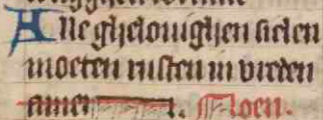 Alle ghelouighen sielen
moeten rusten in vreden
amen